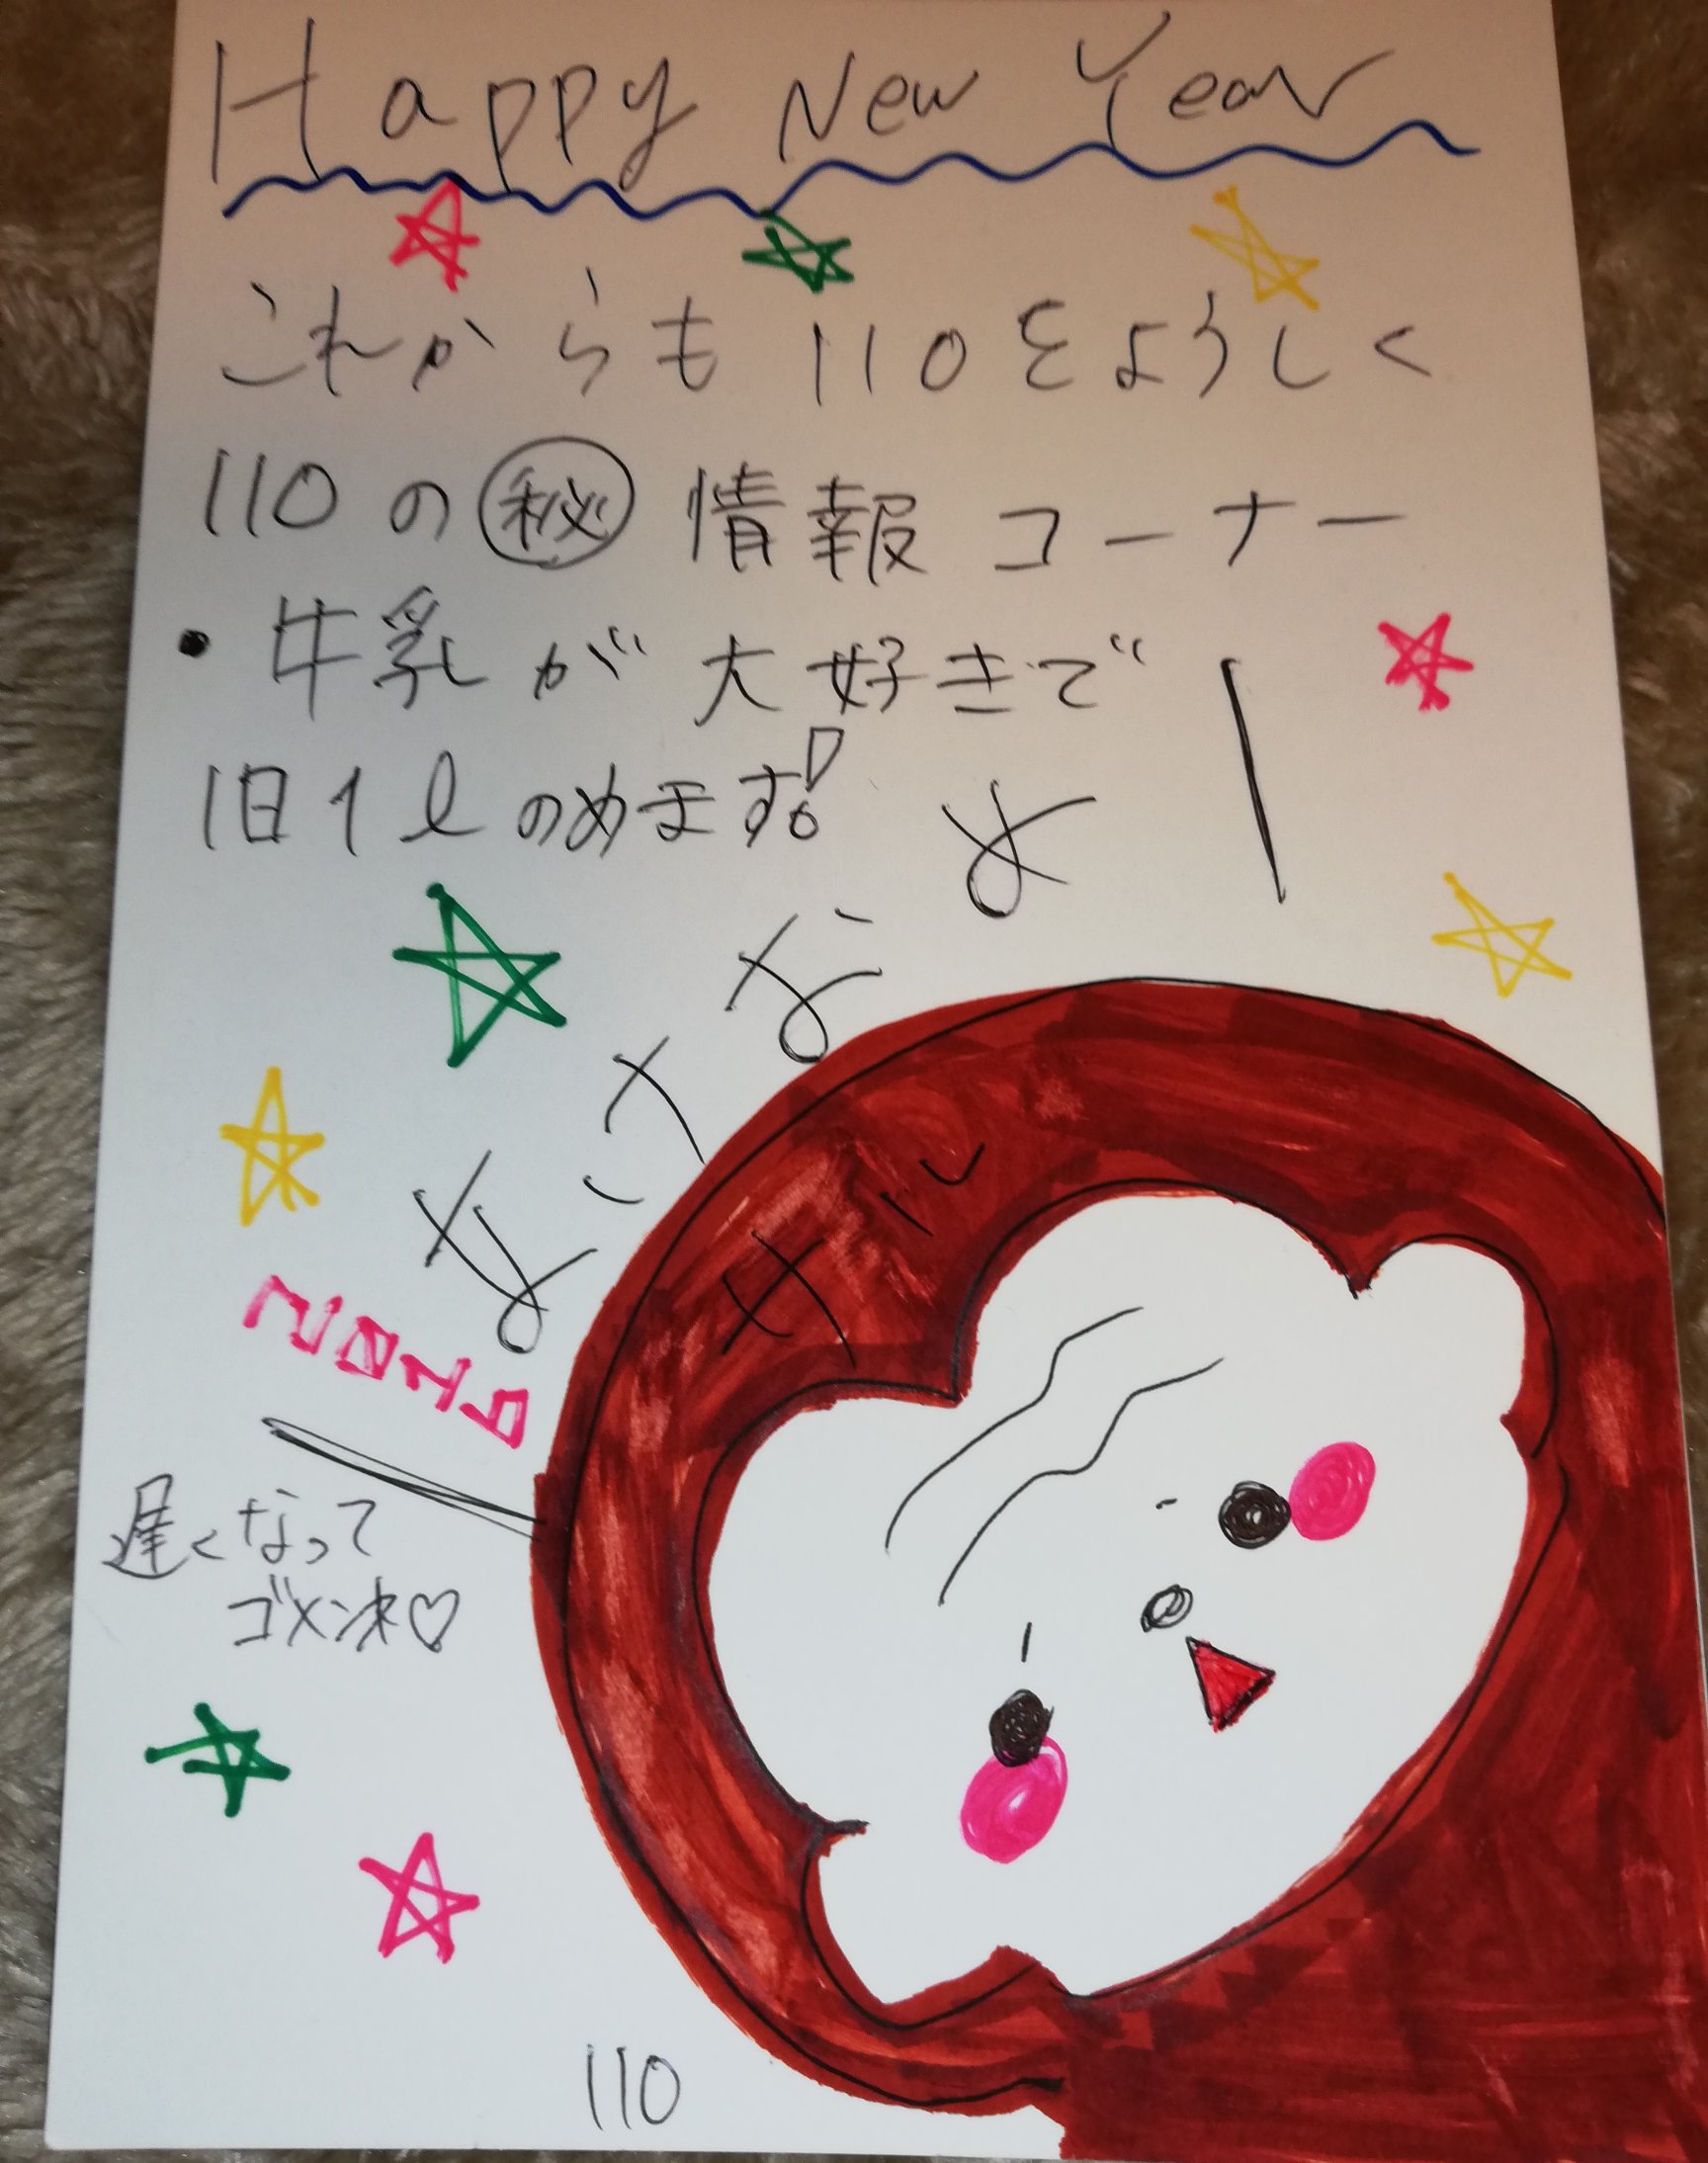 Happy New Year
これからも110をよろしく
110の㊙情報コーナー
・牛乳が大好きで
1日1ℓのめます!
サル
2016
遅くなって
ゴメンネ♡
110